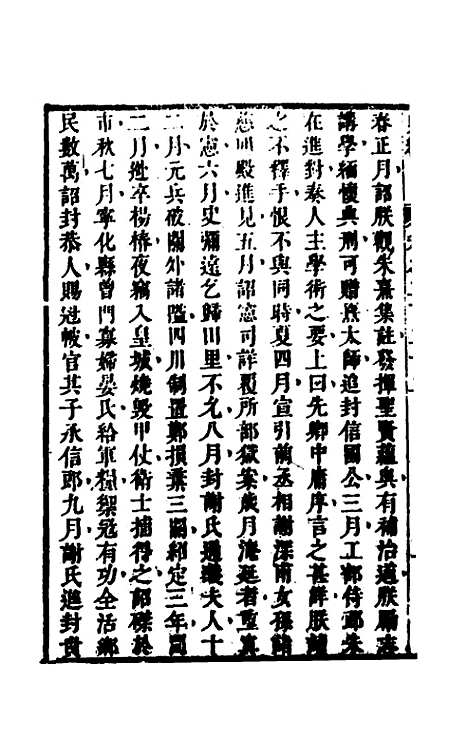 春正月詔朕觀朱熹集註發揮聖賢蘊奧有補治道朕勵志
講學緬懷典刑可贈熹太師追封信國公三月工部侍郎朱
在進對奏人主學術之要上曰先卿中庸序言之甚詳朕讀
之不釋手恨不與同時夏四月宣引前丞相謝深甫女孫諸
慈明殿進見五月詔憲司詳覆所部獄案歲月淹延者重寘
於憲六月史彌遠乞歸田里不允八月封謝氏通義夫人十
二月元兵破關外諸隘四川制置鄭損棄三關紹定三年閏
二月逃卒楊椿夜竊入皇城燒毀甲仗衛士捕得之詔磔於
市秋七月寧化縣曾門寡婦晏氏給軍糧禦寇有功全活鄉
民數萬詔封恭人賜冠帔官其子承信郎九月謝氏進封貴